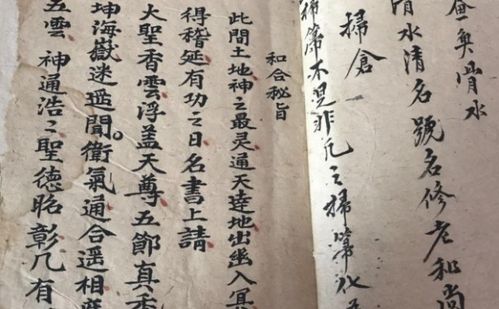 水
清水清名號名修老和尚
掃倉
掃箒不是非凡之掃箒化
和合秘旨
此間土地神之最灵通天達地出幽入冥
得稽延有功之日名書上請
大聖香雲浮盖天尊五節真香
坤海嶽迷遥聞衛氣通合遥相
五雲 神通浩〻聖德昭彰凡有